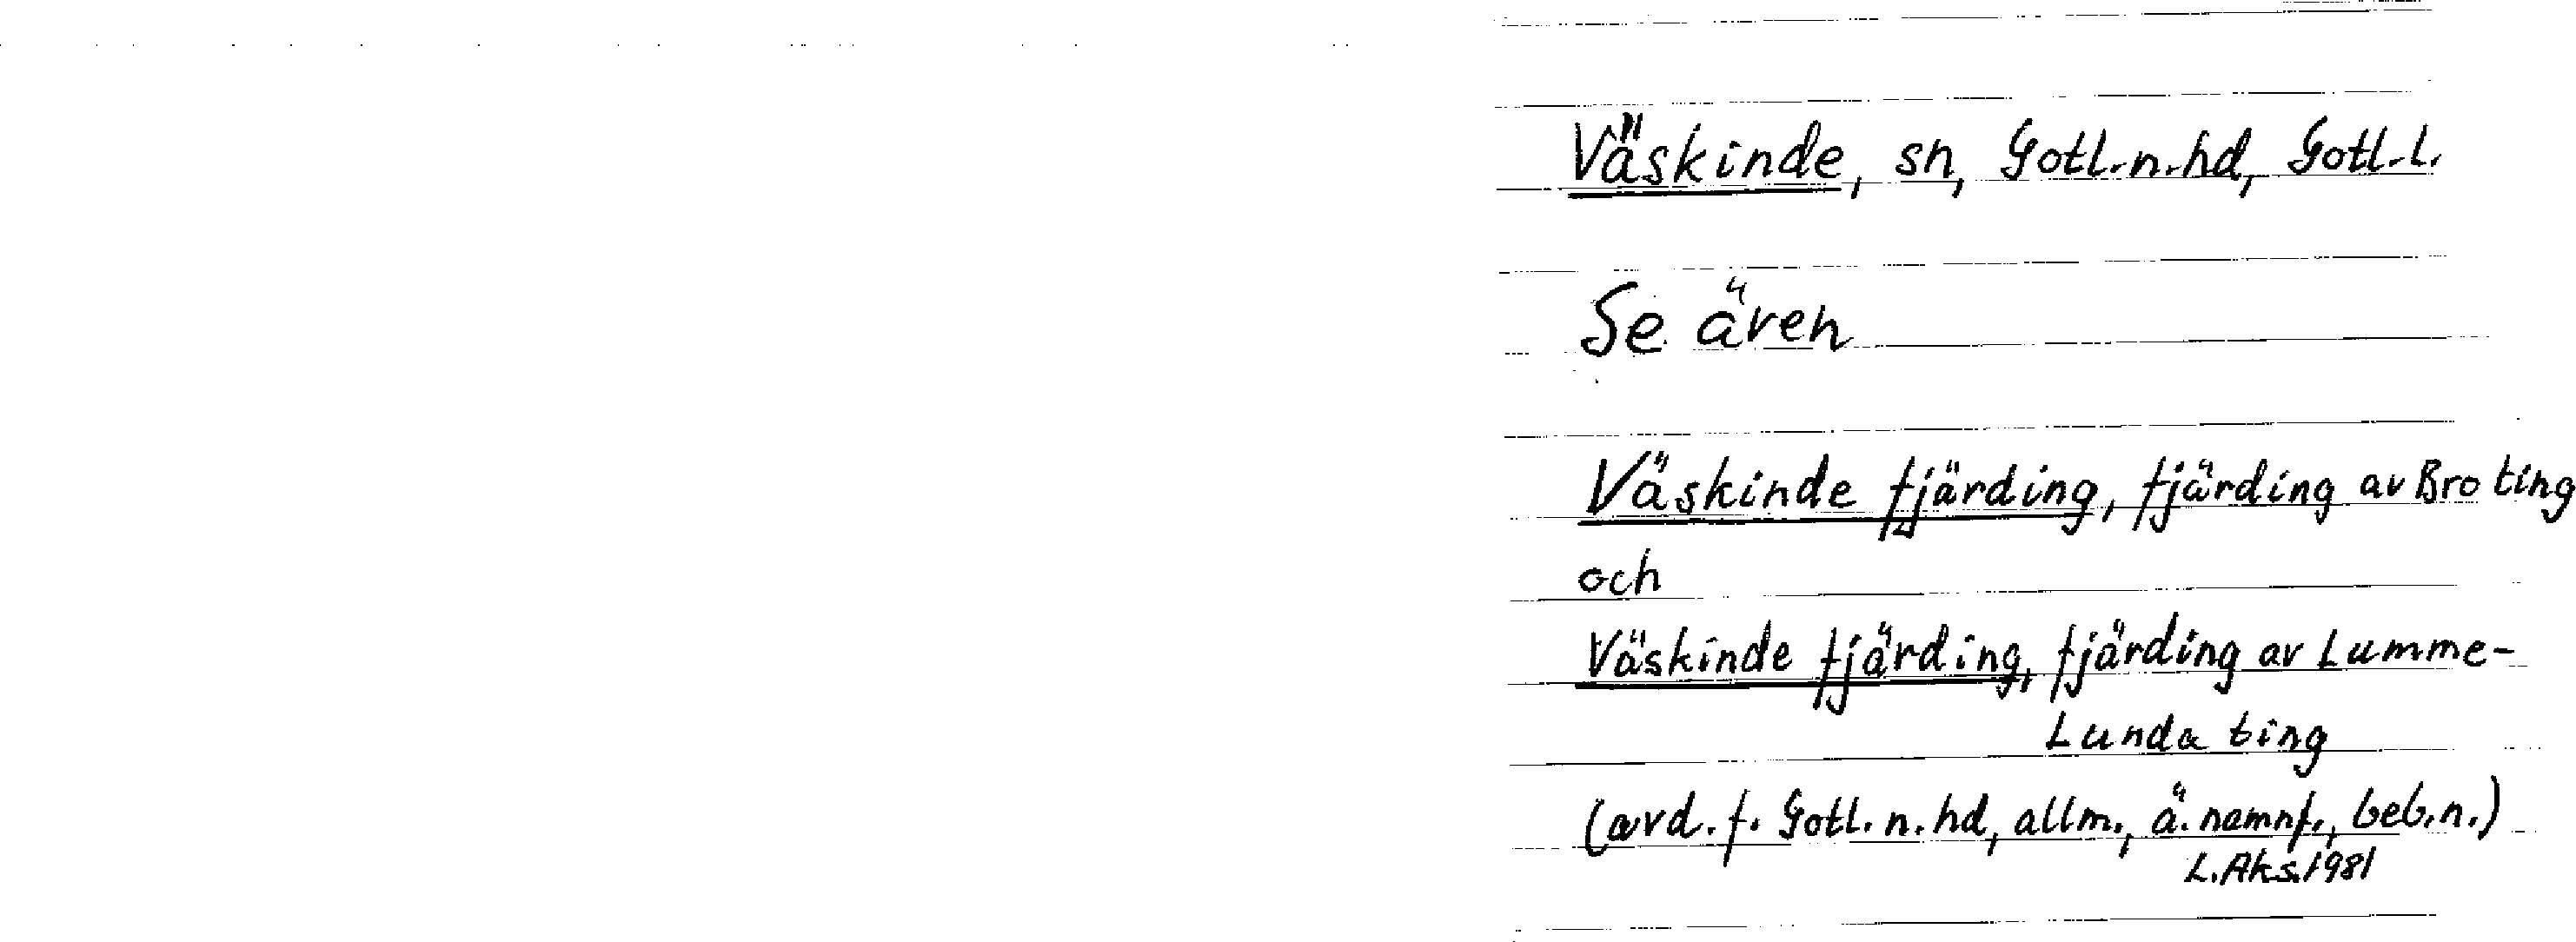 Väskinde, sn, Gotl.n.hd, Gotl.l.
Se även
Väskinde fjärding, fjärding av Bro ting
och
Väskinde fjärding, fjärding av Lumme-
Lunda ting
(avd. f. Gotl. n. hd, allm., ä. namnf., beb.n.)
L.Aks.1981